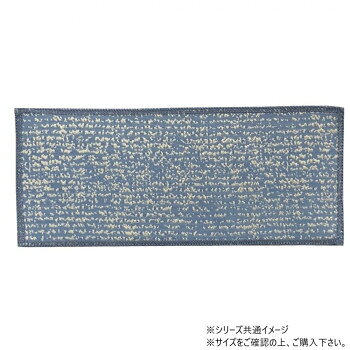 ※シリーズ共通イメージ
※サイズをご確認の上、ご購入下さい。